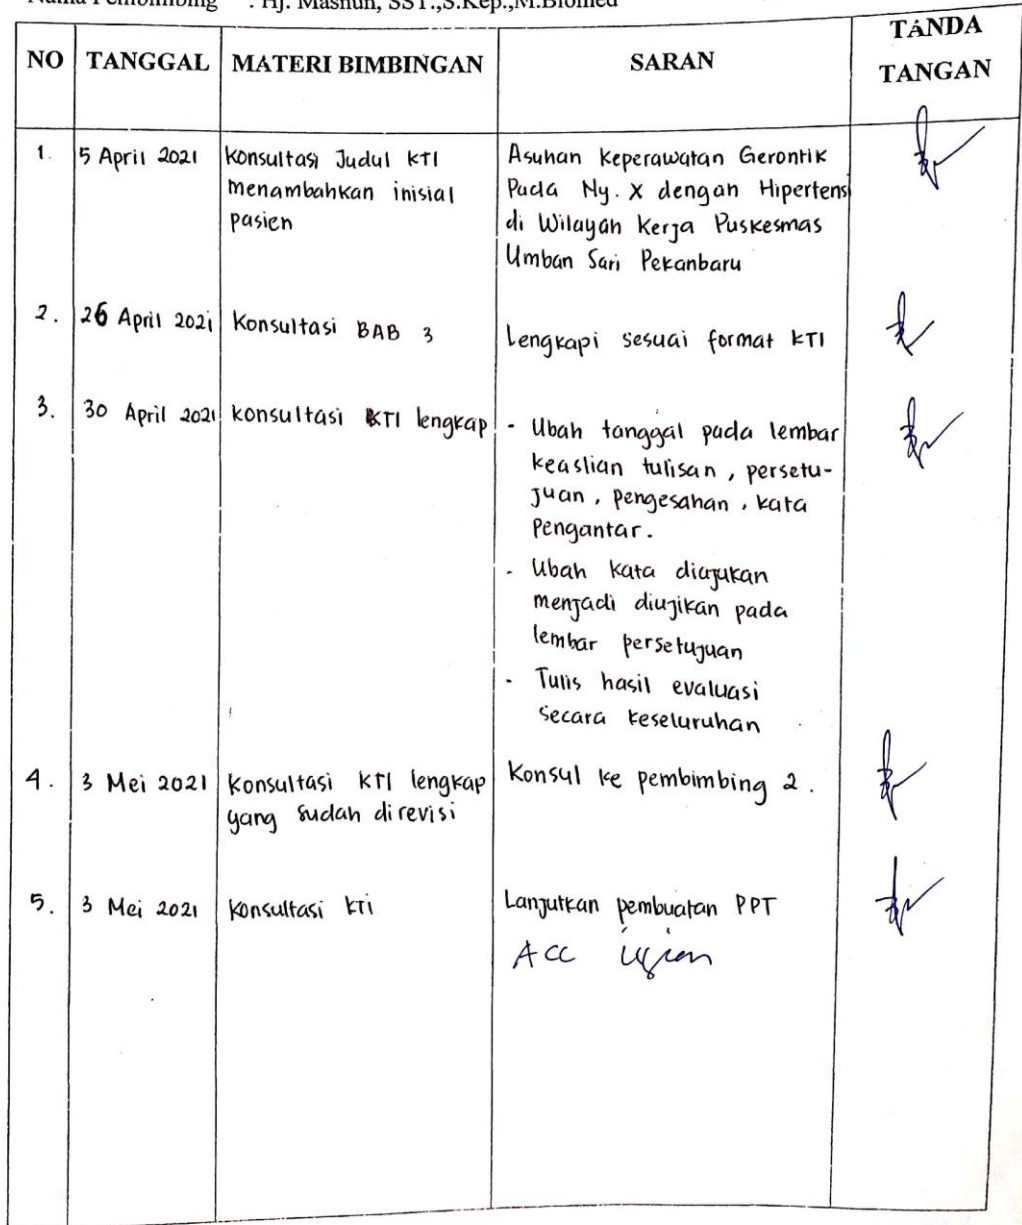 Nama Pembimbing : Hj. Masnun, SST.,S.Kep.,M.Biomed
NO TANGGAL MATERI BIMBINGAN SARAN TANDA TANGAN
1. 5 April 2021 Konsultasi Judul KTI Asuhan Keperawatan Gerontik
menambahkan inisial Pada Ny. X dengan Hipertensi
pasien di Wilayah Kerja Puskesmas
Umban Sari Pekanbaru
2. 26 April 2021 Konsultasi BAB 3 Lengkapi sesuai format KTI
3. 30 April 2021 Konsultasi KTI lengkap - Ubah tanggal pada lembar
keaslian tulisan, persetu-
juan, pengesahan, kata
Pengantar.
- Ubah kata diajukan
menjadi diujikan pada
lembar persetujuan
- Tulis hasil evaluasi
secara keseluruhan
4. 3 Mei 2021 Konsultasi KTI lengkap Konsul ke pembimbing 2.
yang sudah direvisi
5. 3 Mei 2021 Konsultasi KTi Lanjutkan pembuatan PPT
ACC ujian